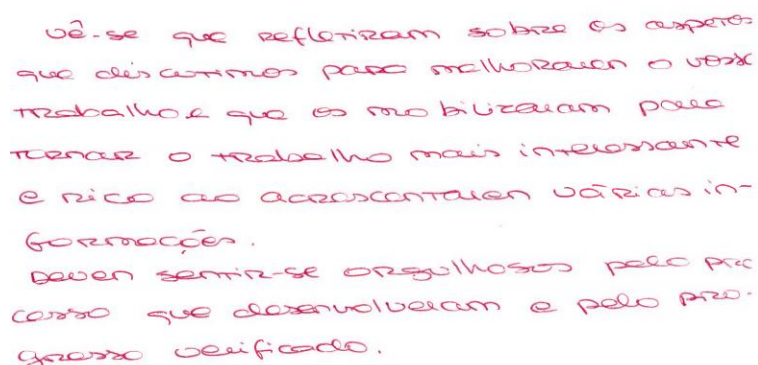 Vê-se que refletiram sobre os aspetos
que discutimos para melhorarem o vosso
trabalho e que os mobilizaram para
tornar o trabalho mais interessante
e rico ao acrescentarem várias in-
formações.
Devem sentir-se orgulhosos pelo pro
cesso que desenvolveram e pelo pro-
gresso verificado.